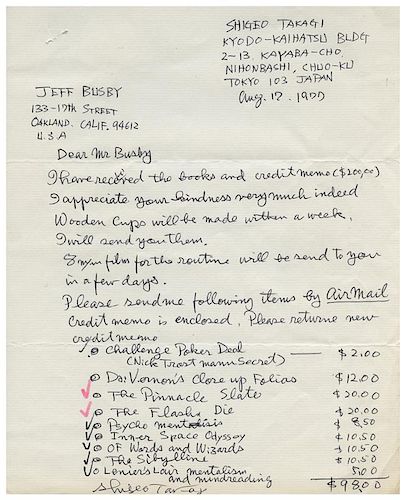 SHIGEO TAKAGI
KYODO-KAIHATSU BLDG
2-13, KAYABA-CHO,
NIHONBASHI, CHUO-KU
TOKYO 103 JAPAN
Aug. 17. 1977
JEFF BUSBY
133-17th STREET
OAKLAND. CALIF. 94612
U.S.A
Dear Mr Busby
I have received the books and credit memo ($200,00)
I appreciate your kindness very much indeed
Wooden Cups will be made within a week,
I will send you them.
8m/m film for the routine will be send to you
in a few days.
Please send me following items by Air Mail
Credit memo is enclosed, Please returne new
credit memo
Challenge Poker Deal — $2,00
(Nick Trost mann Secret)
Dai Vernon's Close up Folias $12,00
The Pinnacle Slate $20,00
The Flash Die $20,00
Psycho $8,50
Inner Space Odyssey $10,50
OF Words and Wizards $10,50
The Sibylline $10,50
Lenier's Lair mentalism 5,00
and mindreading
$98,00
Shigeo Takagi